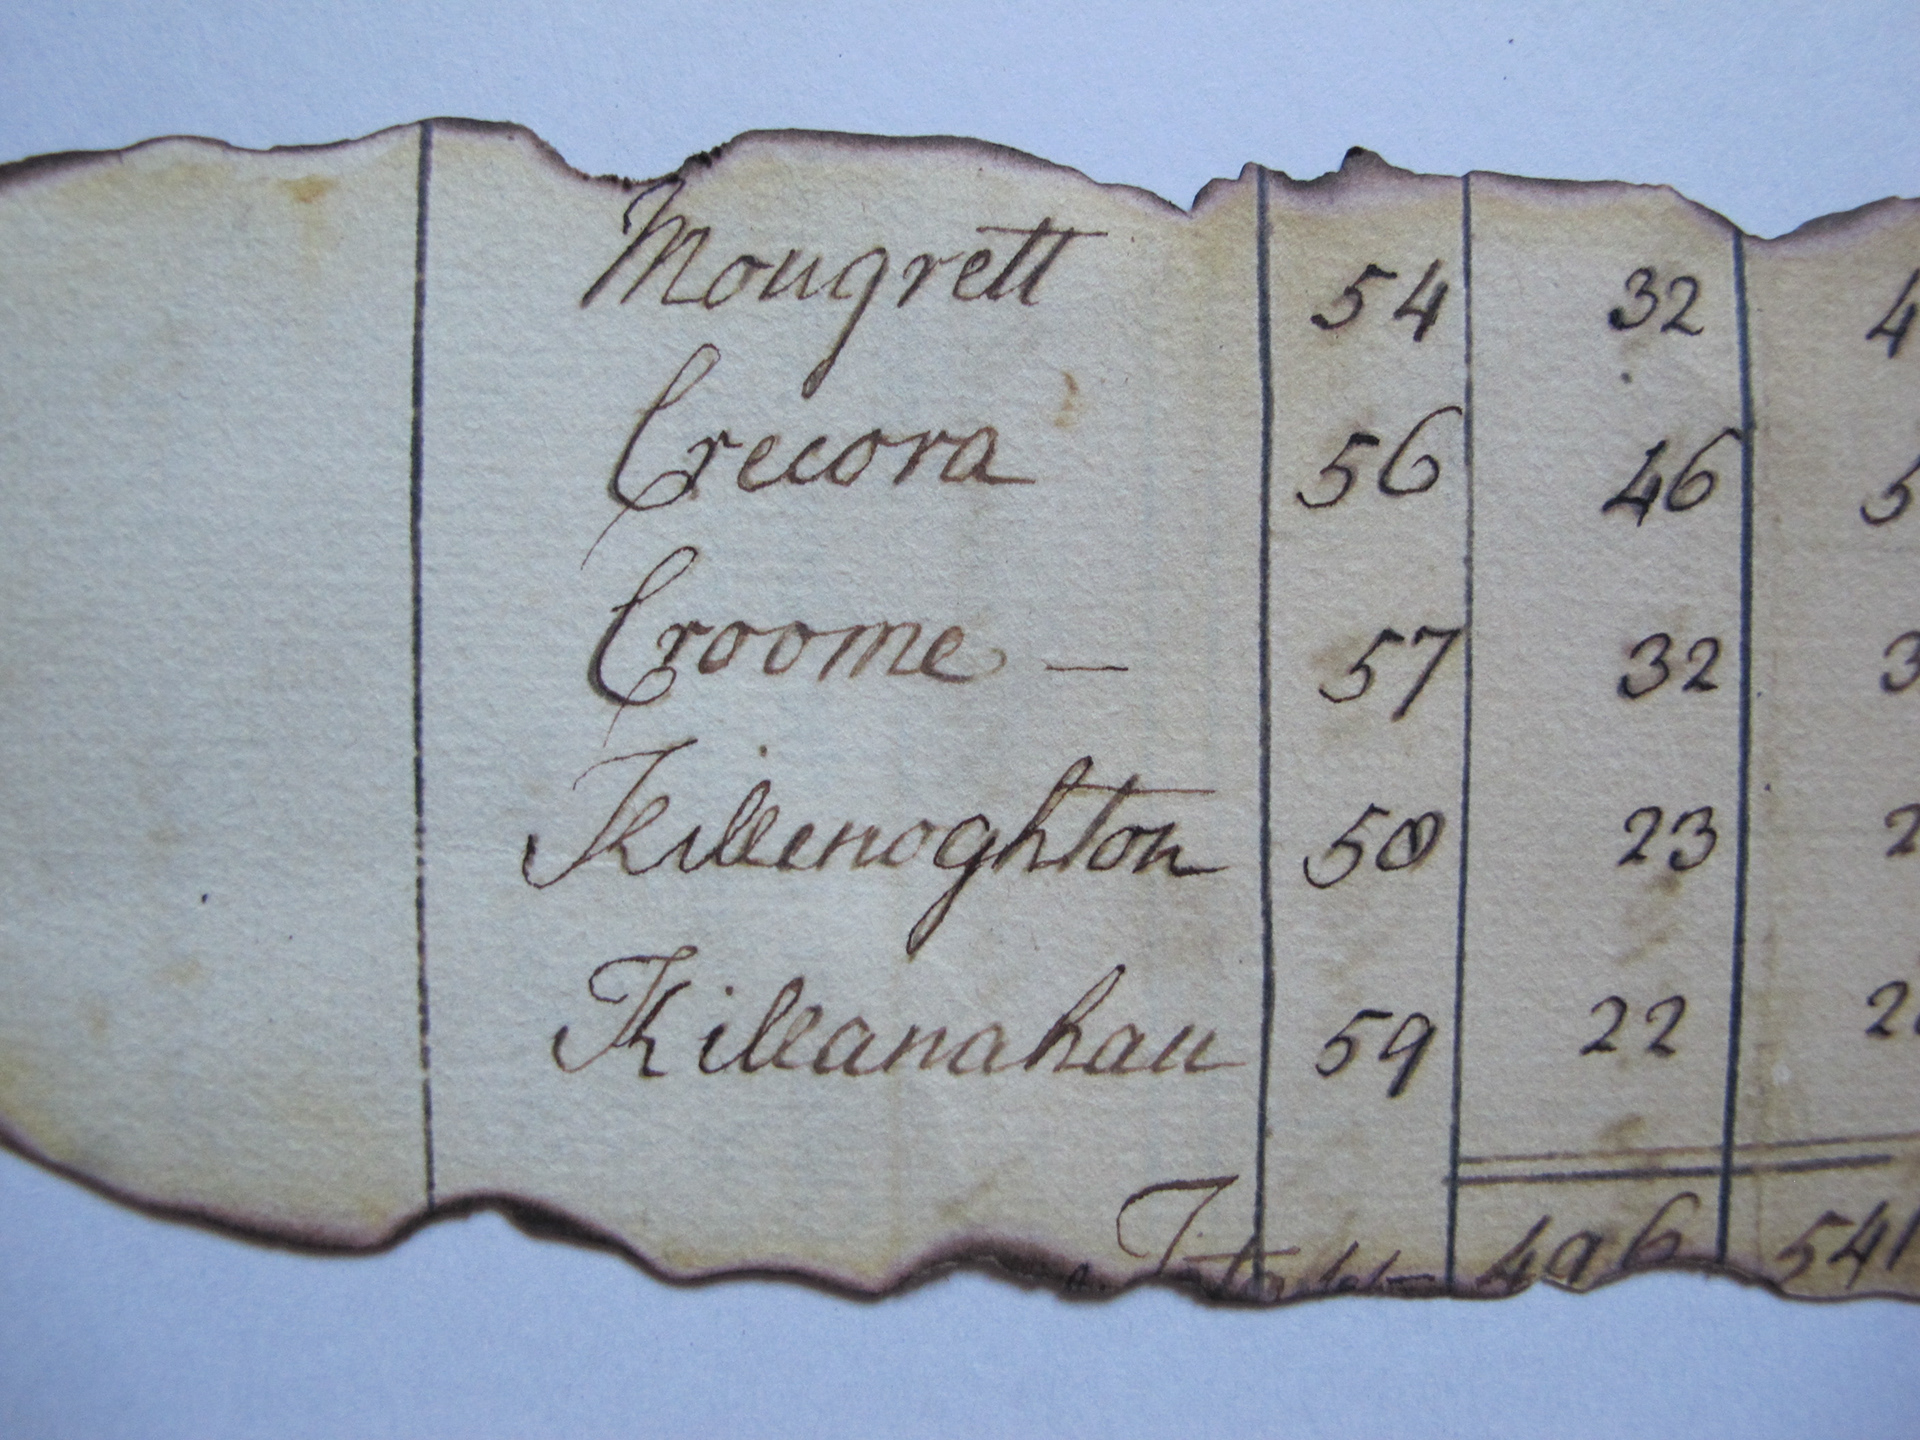 Mougrett 54 32 4
Crecora 56 46 5
Croome — 57 32 3
Killenoghton 58 23 2
Killeanahan 59 22 2
496 541